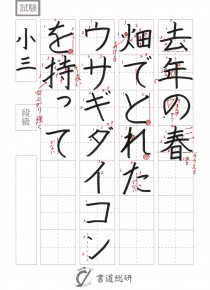 去年の春
畑でとれた
ウサギダイコン
を持って
試験
小三
段級
書道総研